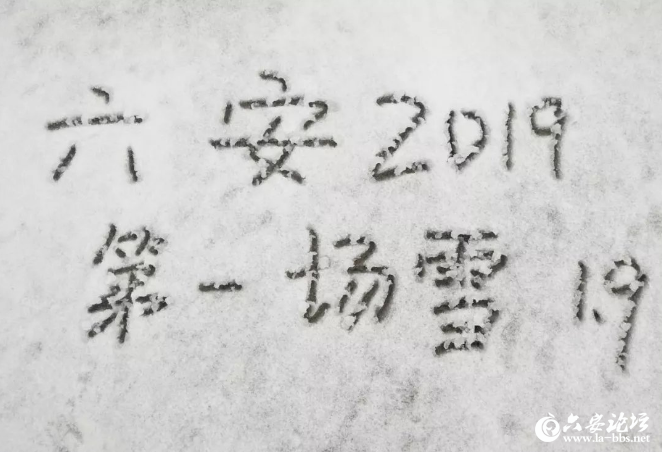 六安2019
第一场雪 1.9
六安论坛
www.la-bbs.net